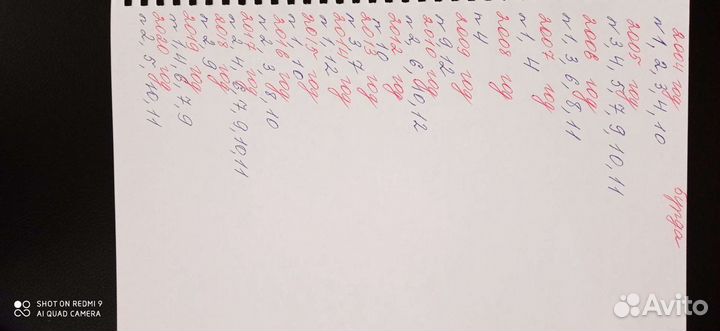 бурда
2004 год
n 1, 2, 3, 4, 10
2005 год
n 3, 4, 5, 7, 9, 10, 11
2006 год
n 1, 3, 6, 8, 11
2007 год
n 1, 4
2008 год
n 4
2009 год
n 9, 12
2010 год
n 2, 6, 10, 12
2012 год
n 10
2013 год
n 3, 7
2014 год
n 1, 12
2015 год
n 1, 10
2016 год
n 2, 3, 8, 10
2017 год
n 2, 4, 6, 7, 9, 10, 11
2018 год
n 2, 9
2019 год
n 1, 4, 6, 7, 9
2020 год
n 2, 5, 10, 11
SHOT ON REDMI 9
AI QUAD CAMERA
Avito